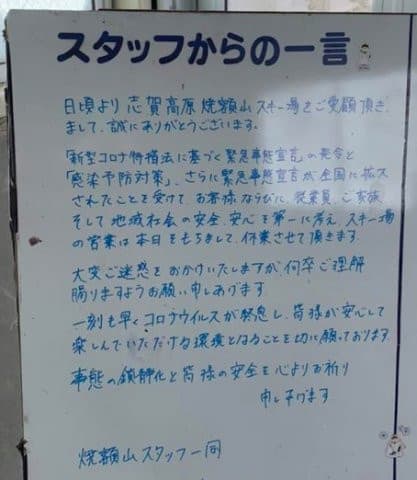 スタッフからの一言
日頃より志賀高原 焼額山スキー場をご愛顧頂き、
まして、誠にありがとうございます。
「新型コロナ特措法に基づく緊急事態宣言」の発令と
「感染予防対策」、さらに緊急事態宣言が全国に拡大
されたことを受けて、お客様ならびに、従業員、ご家族
そして地域社会の安全、安心を第一に考え、スキー場
の営業は本日をもちまして、休業させて頂きます。
大変ご迷惑をおかけいたしますが、何卒ご理解
賜りますようお願い申しあげます
一刻も早くコロナウイルスが終息し、皆様が安心して
楽しんでいただける環境となることを切に願っております。
事態の鎮静化と皆様の安全を心よりお祈り
申し上げます
焼額山スタッフ一同